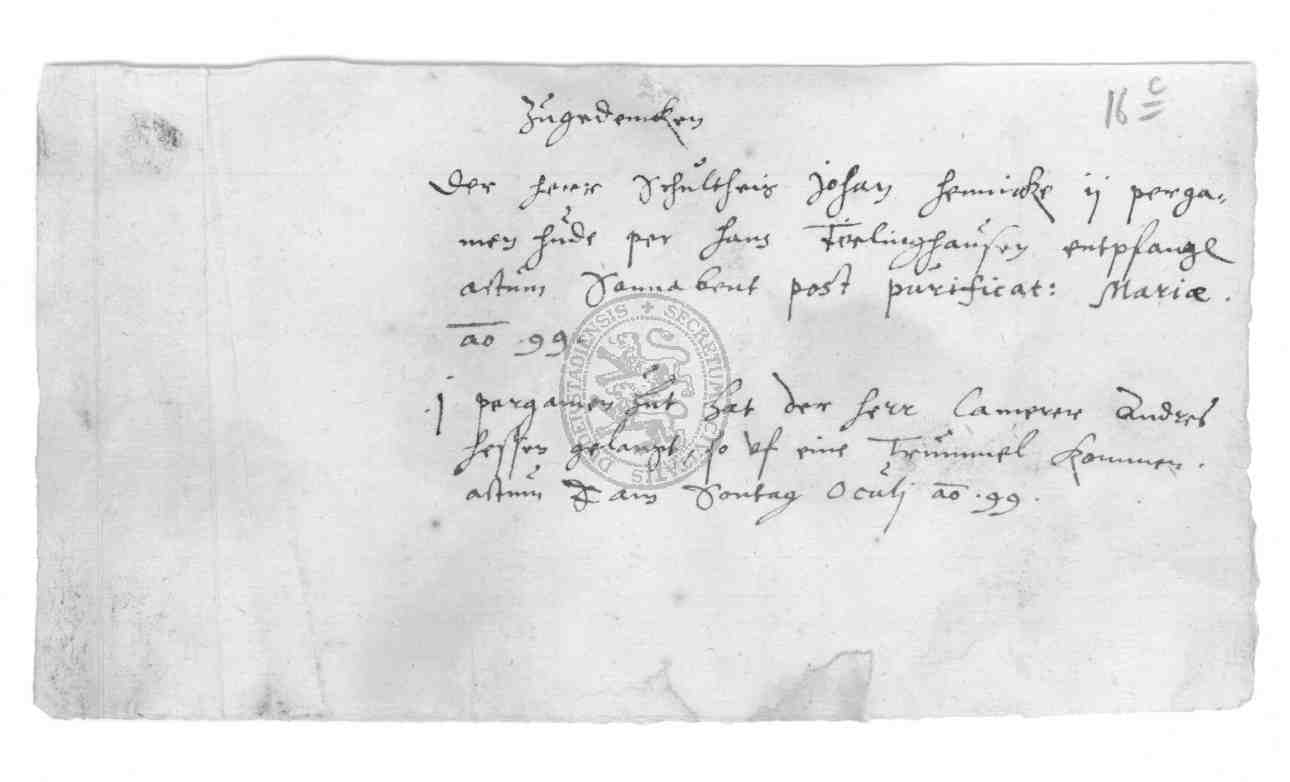 16 c
Zugedencken
Der herr Schultheis Johan Hennicke ij perga-
men hude per Hans entpfangen
actum Sonnabent post purificat: Mariæ.
ao .99.
.j pergamen hut hat der herr Camerer Andres
Hessen gelanget, so uf eine Trummel kommen.
actum am Sontag Oculj ao .99.
SECRETUM CIVITATIS DUDERSTADIENSIS